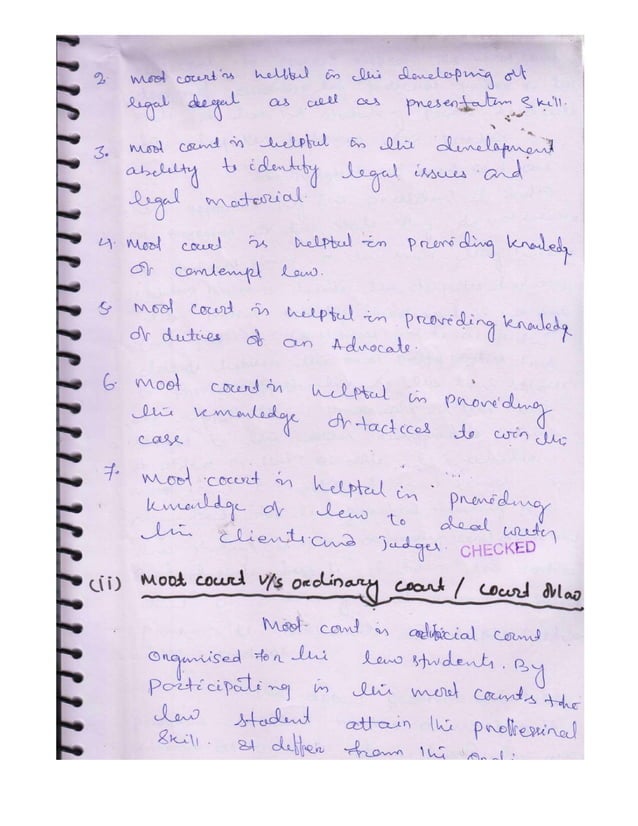 2. Moot court is helpful in the developing of
legal as well as presentation skill.
3. Moot court is helpful in the development
ability to identify legal issues and
legal material.
4. Moot court is helpful in providing knowledge
of contempt law.
5. Moot court is helpful in providing knowledge
of duties of an Advocate.
6. Moot court is helpful in providing
the knowledge of tactices to win the
case
7. Moot court is helpful in providing
knowledge of law to deal with
the clients and judges. CHECKED
(ii) Moot court v/s ordinary court / court of law
Moot court is court
organised for the law students. By
participating in the moot courts the
law student attain the professional
skill. It differ from the